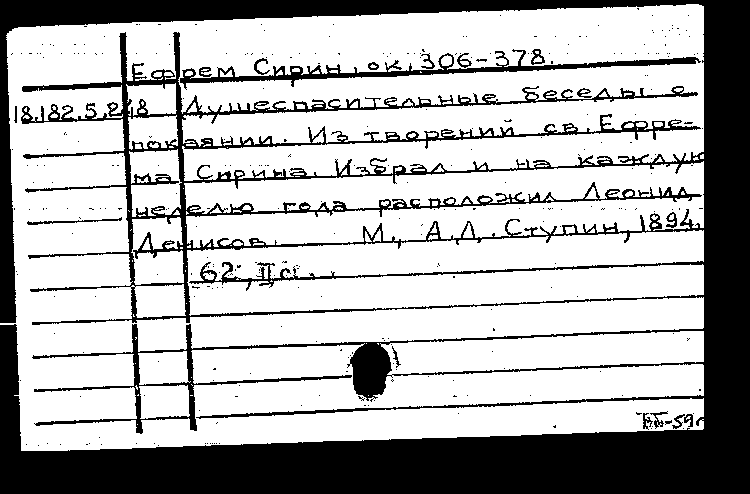 Ефрем Сирин, ок. 306-378.
18.182.5.248 Душеспасительные беседы о
покаянии. Из творений св. Ефре-
ма Сирина. Избрал и на каждую
неделю года расположил Леонид
Денисов. М., А.Д. Ступин, 1894.
62, II с.